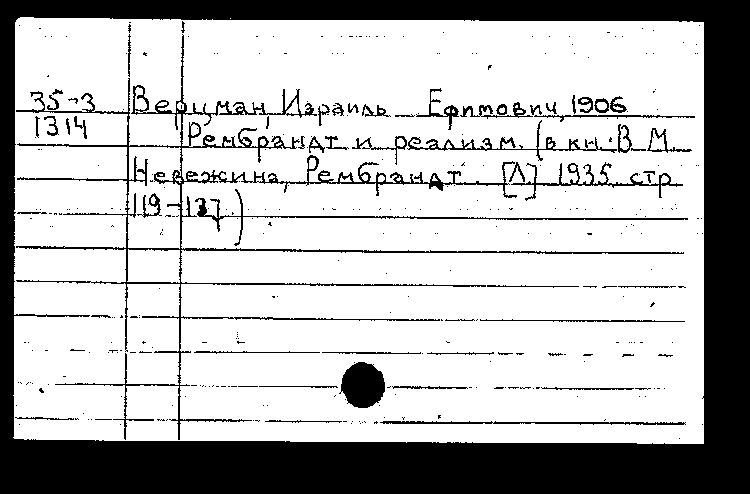 35-3 Верцман, Израиль Ефимович, 1906
1314 Рембрандт и реализм. (в кн.: В М
Невежина, Рембрандт. [Л] 1935 стр
119-137)